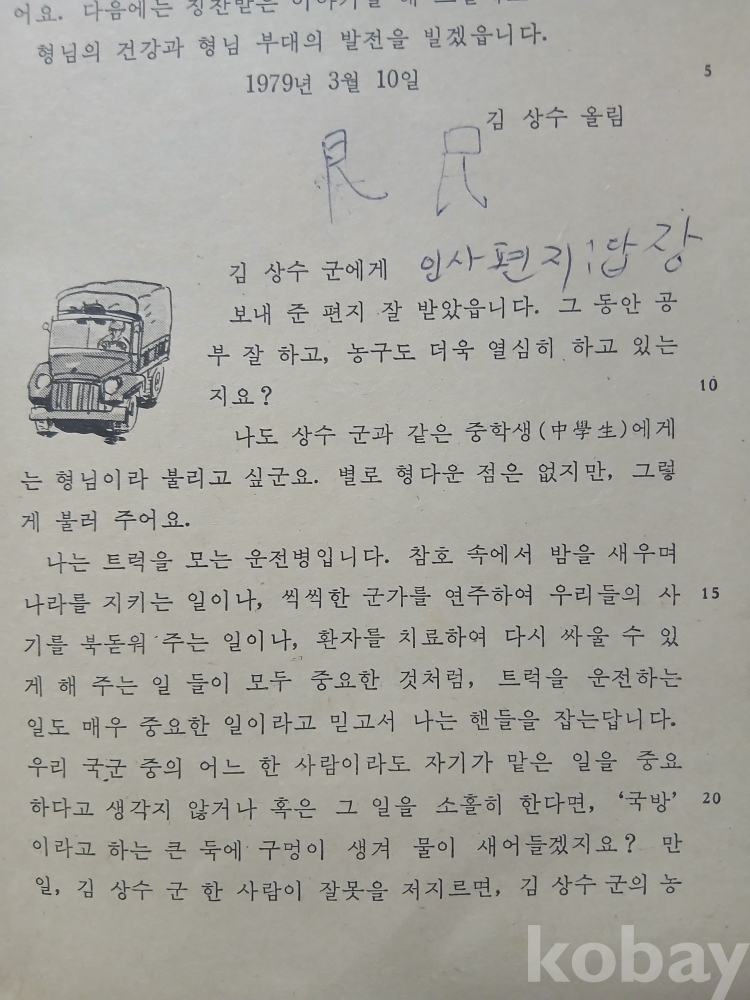 어요. 다음에는 칭찬받은 이야기를 해
형님의 건강과 형님 부대의 발전을 빌겠읍니다.
1979년 3월 10일
5
김 상수 올림
김 상수 군에게 인사편지 답장
보내 준 편지 잘 받았읍니다. 그 동안 공
부 잘 하고, 농구도 더욱 열심히 하고 있는
지요?
10
나도 상수 군과 같은 중학생(中學生)에게
는 형님이라 불리고 싶군요. 별로 형다운 점은 없지만, 그렇
게 불러 주어요.
나는 트럭을 모는 운전병입니다. 참호 속에서 밤을 새우며
나라를 지키는 일이나, 씩씩한 군가를 연주하여 우리들의 사 15
기를 북돋워 주는 일이나, 환자를 치료하여 다시 싸울 수 있
게 해 주는 일 들이 모두 중요한 것처럼, 트럭을 운전하는
일도 매우 중요한 일이라고 믿고서 나는 핸들을 잡는답니다.
우리 국군 중의 어느 한 사람이라도 자기가 맡은 일을 중요
하다고 생각지 않거나 혹은 그 일을 소홀히 한다면, ‘국방’ 20
이라고 하는 큰 둑에 구멍이 생겨 물이 새어들겠지요? 만
일, 김 상수 군 한 사람이 잘못을 저지르면, 김 상수 군의 농
kobay